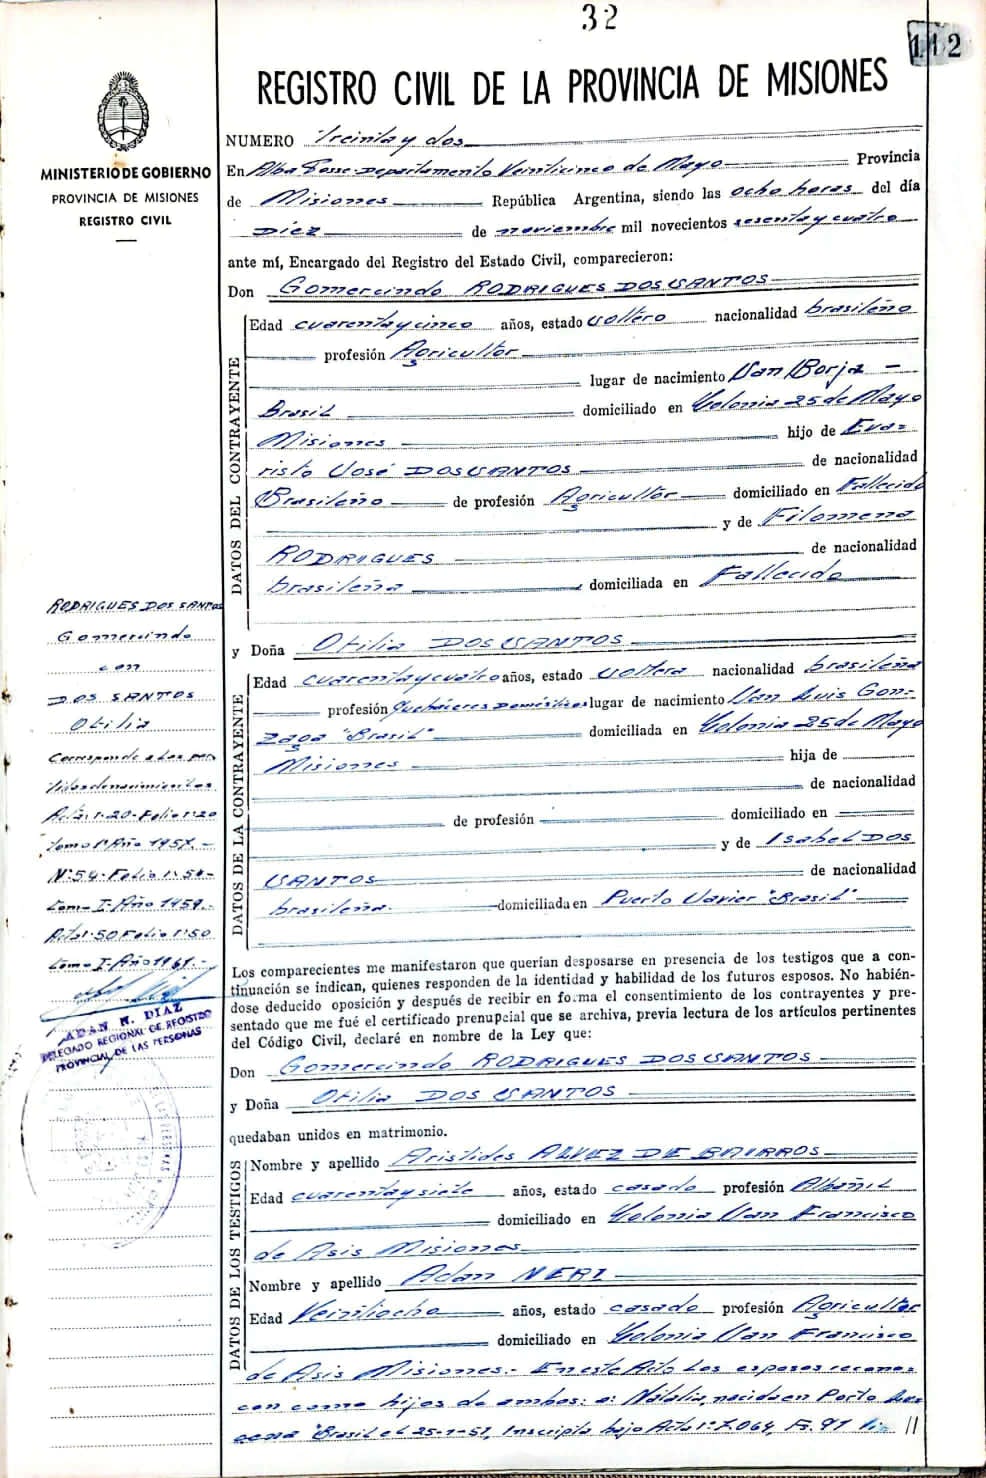 32
112
REGISTRO CIVIL DE LA PROVINCIA DE MISIONES
MINISTERIO DE GOBIERNO
PROVINCIA DE MISIONES
REGISTRO CIVIL
NUMERO Treinta y dos
En Alba Posse Departamento Veinticinco de Mayo Provincia
de Misiones República Argentina, siendo las ocho horas del día
Diez de noviembre mil novecientos sesenta y cuatro
ante mí, Encargado del Registro del Estado Civil, comparecieron:
Don Gomercindo RODRIGUES DOS SANTOS
DATOS DEL CONTRAYENTE
Edad cuarenta y cinco años, estado soltero nacionalidad brasileño
profesión Agricultor
lugar de nacimiento San Borja -
Brasil domiciliado en Colonia 25 de Mayo
Misiones hijo de Eva=
risto José DOS SANTOS de nacionalidad
Brasileño de profesión Agricultor domiciliado en Fallecido
y de Filomena
RODRIGUES de nacionalidad
brasileña domiciliada en Fallecida
y Doña Otilia DOS SANTOS
DATOS DE LA CONTRAYENTE
Edad cuarenta y cuatro años, estado soltera nacionalidad brasileña
profesión Quehaceres Domésticos lugar de nacimiento San Luis Gon-
zaga "Brasil" domiciliada en Colonia 25 de Mayo
Misiones hija de
de nacionalidad
de profesión domiciliado en
y de Isabel DOS
SANTOS de nacionalidad
brasileña domiciliada en Puerto Xavier "Brasil"
Los comparecientes me manifestaron que querían desposarse en presencia de los testigos que a con-
tinuación se indican, quienes responden de la identidad y habilidad de los futuros esposos. No habién-
dose deducido oposición y después de recibir en forma el consentimiento de los contrayentes y pre-
sentado que me fué el certificado prenupcial que se archiva, previa lectura de los artículos pertinentes
del Código Civil, declaré en nombre de la Ley que:
Don Gomercindo RODRIGUES DOS SANTOS
y Doña Otilia DOS SANTOS
quedaban unidos en matrimonio.
DATOS DE LOS TESTIGOS
Nombre y apellido Aristides ALVEZ DE BAIRROS
Edad cuarenta y siete años, estado casado profesión Albañil
domiciliado en Colonia San Francisco
de Asis Misiones
Nombre y apellido Adan NERI
Edad Veintiocho años, estado casado profesión Agricultor
domiciliado en Colonia San Francisco
de Asis Misiones.- En este Acto los esposos recono=
cen como hijos de ambos: a: Natalia, nacida en Porto
"Brasil el 25-1-51, Inscripta bajo Acta N° 7.064, Fs. 97 //
RODRIGUES DOS SANTOS
Gomercindo
con
DOS SANTOS
Otilia
Corresponde a las par
tidas de nacimientos
Acta N°20-Folio N°20
Tomo 1° Año 1957.-
N°54-Folio N°54-
Tomo I-Año 1959.-
Acta N°50 Folio N°50
Tomo I-Año 1961.-
ADAN N. DIAZ
DELEGADO REGIONAL DE REGISTRO
PROVINCIAL DE LAS PERSONAS